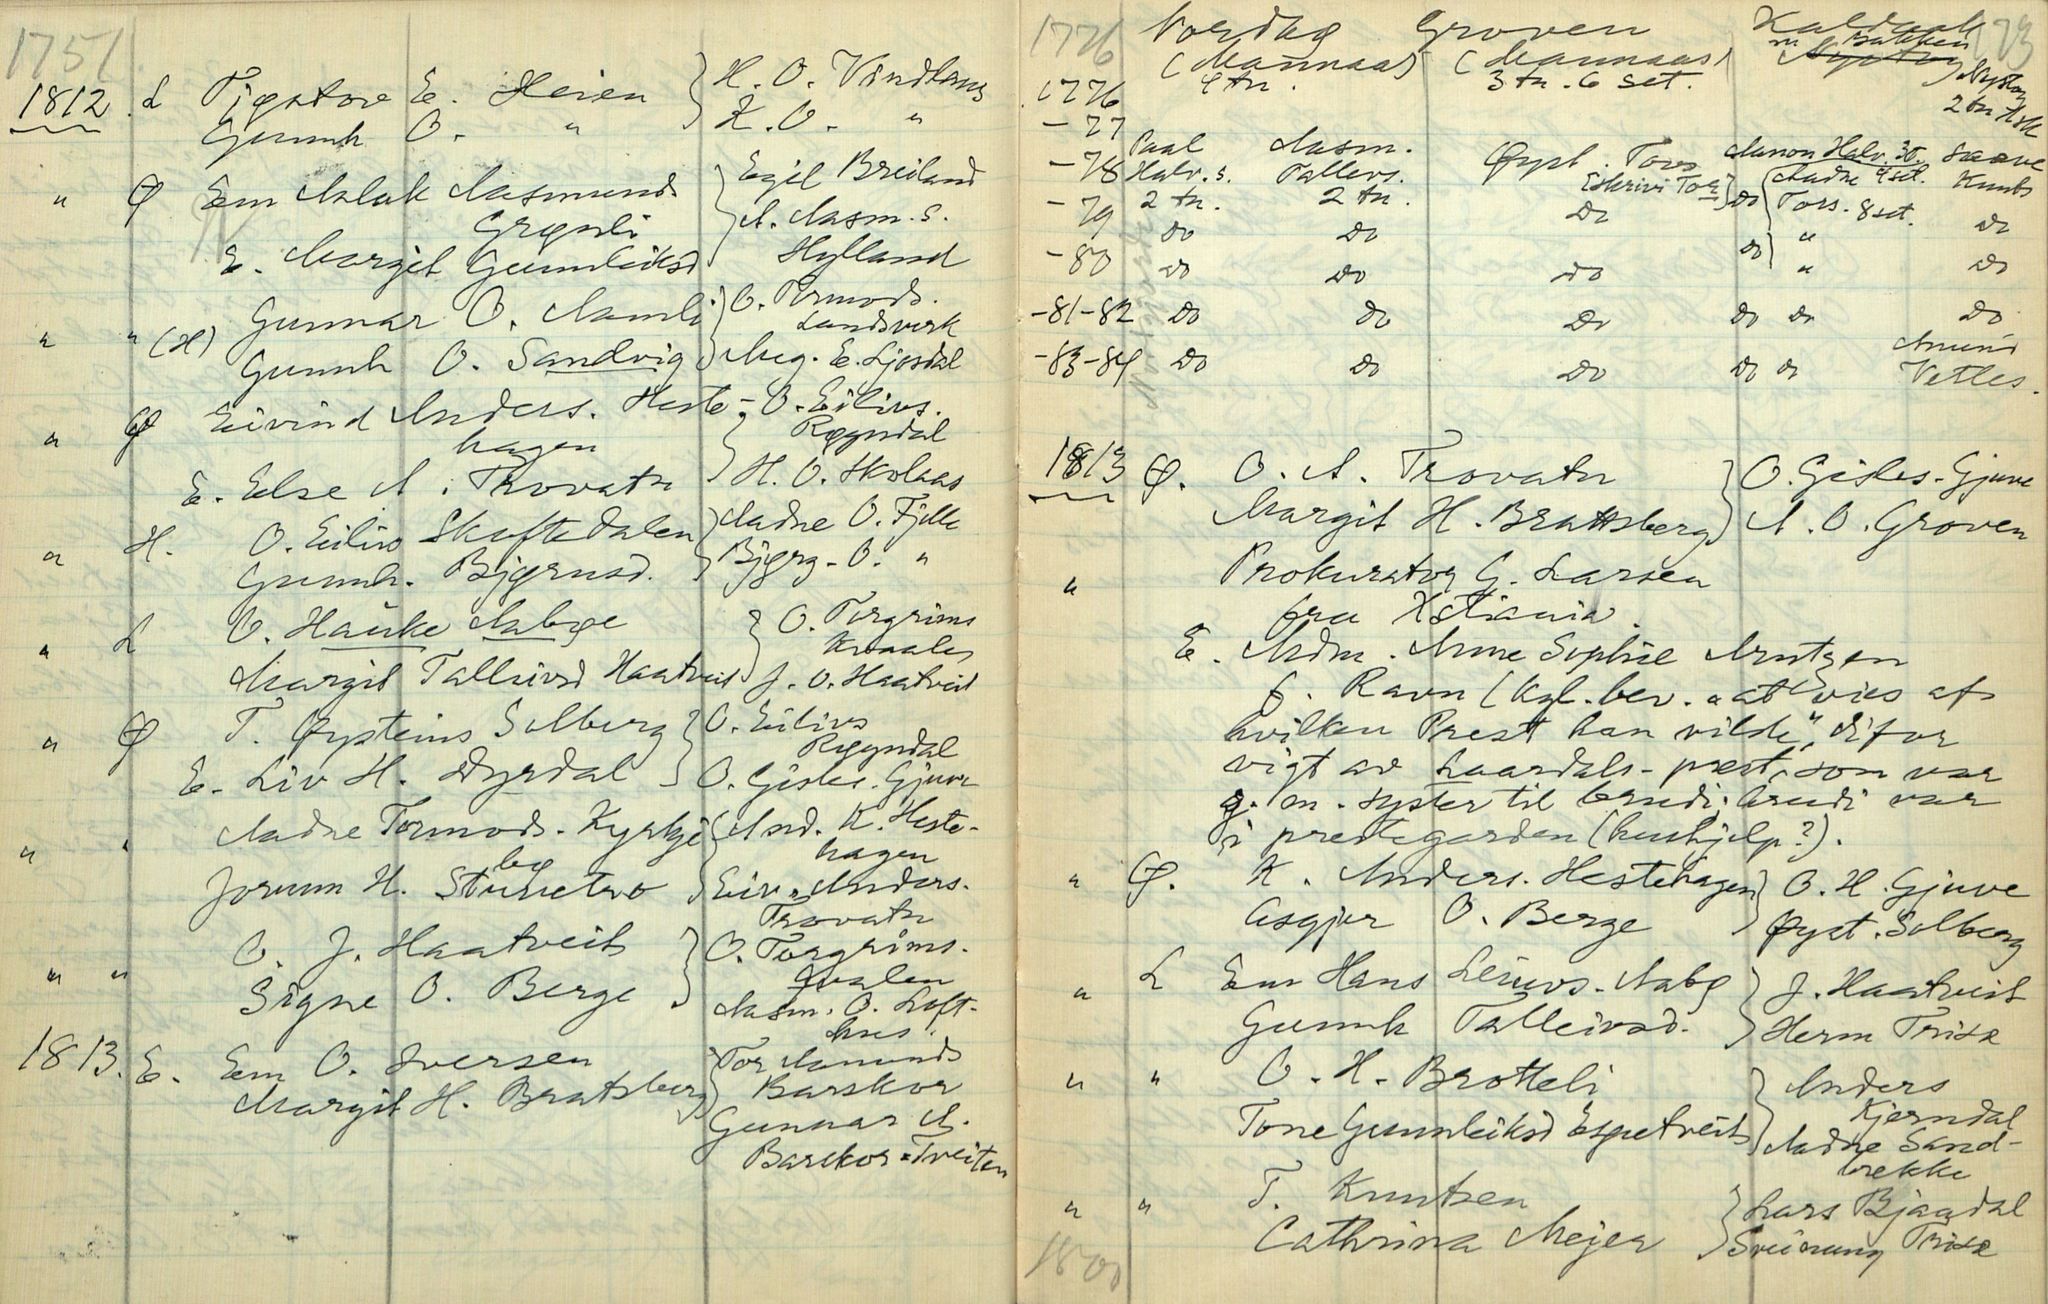 1751
1812 L Tjøstov E. Heien H. O. Vindlaus
Gunnh O. " K. O. "
" Ø Em Aslak Aasmunds Egil Breiland
Grønli A. Aasm. s.
E. Margit Gunnleiksd Hylland
" " (H) Gunnar O. Aamli O. Tormods.
Landsverk
Gunnh O. Sandvig Aag. E. Ljosdal
" Ø Eivind Anders. Heste- O. Eilivs.
hagen Røyndal
E. Else A. Trovatn H. O. Skolaas
" H. O. Eilivs Skaftedalen Aadne O. Fjelle
Gunnh. Bjørnsd. Bjørg. O. "
" L O. Hauke Aabøe O. Torgrims
Kvaale
Margit Talleivsd Haatveit J. O. Haatveit
" Ø T. Øysteins Solberg O. Eilivs
Røyndal
E. Liv H. Dyrdal O. Gisles. Gjuve
" " Aadne Tormods. Kyrkje- And. K. Heste-
bø hagen
Jorunn H. Stuvetvo Eiv. Anders.
Trovatn
" " O. J. Haatveit O. Torgrims.
Kvalen
Signe O. Berge Aasm. O. Loft-
hus.
1813. E. Em O. Iversen Tor Aamunds
Margit H. Bratsberg Barskor
Gunnar A.
Barskor - Tveiten
1776 Vordag Groven Kaldaak 173
(Maurnaas) (Maurnaas) m Bakken
4 tn. 3 tn. 6 set. Nystog
1776 2 tn Ask
- 77
- 78 Paal Aasm. Øyst. Tovs Aanon Halv. 3t. Saave
Halv. s. Tallevs. (Skrivi Tor) do Aadne 4 set. Knuts
- 79 2 tn. 2 tn. do Tors. 8 set.
do do do " do
- 80 do do do " do
- 81-82 do do do do do do
Amund
- 83-84 do do do do do Vetles.
1813 Ø. O. A. Trovatn O. Gisles. Gjuve
Margit H. Brattsberg A. O. Groven
" Prokurator G. Larsen
fra Xstiania.
E. Mdm. Anne Sophie Arntzen
f. Ravn (kgl. bev. "at vies af
hvilken Prest han vilde", difor
vigt av Laardals-prest, som var
g. m. syster til brudi, brudi var
i prestegarden (hushjelp?).
" Ø. K. Anders. Hestehagen O. H. Gjuve
Asgjer O. Berge Øyst. Solberg
" L Em Hans Leivs. Aabø J. Haatveit
Gunnh Talleivsd. Herm Trisæ
" " O. H. Brotteli Anders
Kjerndal
Tone Gunnleiksd Espetveit Aadne Sand-
brekke
" " T. Knutsen Lars Bjaadal
Cathrina Mejer Sveinung Trisæ
1800